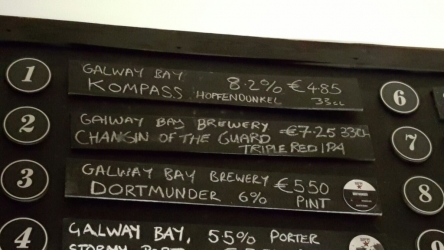 1
GALWAY BAY 8.2% €4.85
KOMPASS HOPFENDUNKEL 33cc
6
2
GALWAY BAY BREWERY €7.25 330
CHANGIN OF THE GUARD TRIPLE RED IPA
7
3
GALWAY BAY BREWERY €5.50
DORTMUNDER 6% PINT
8
4
GALWAY BAY, 5.5% PORTER
STORMY PORT
9